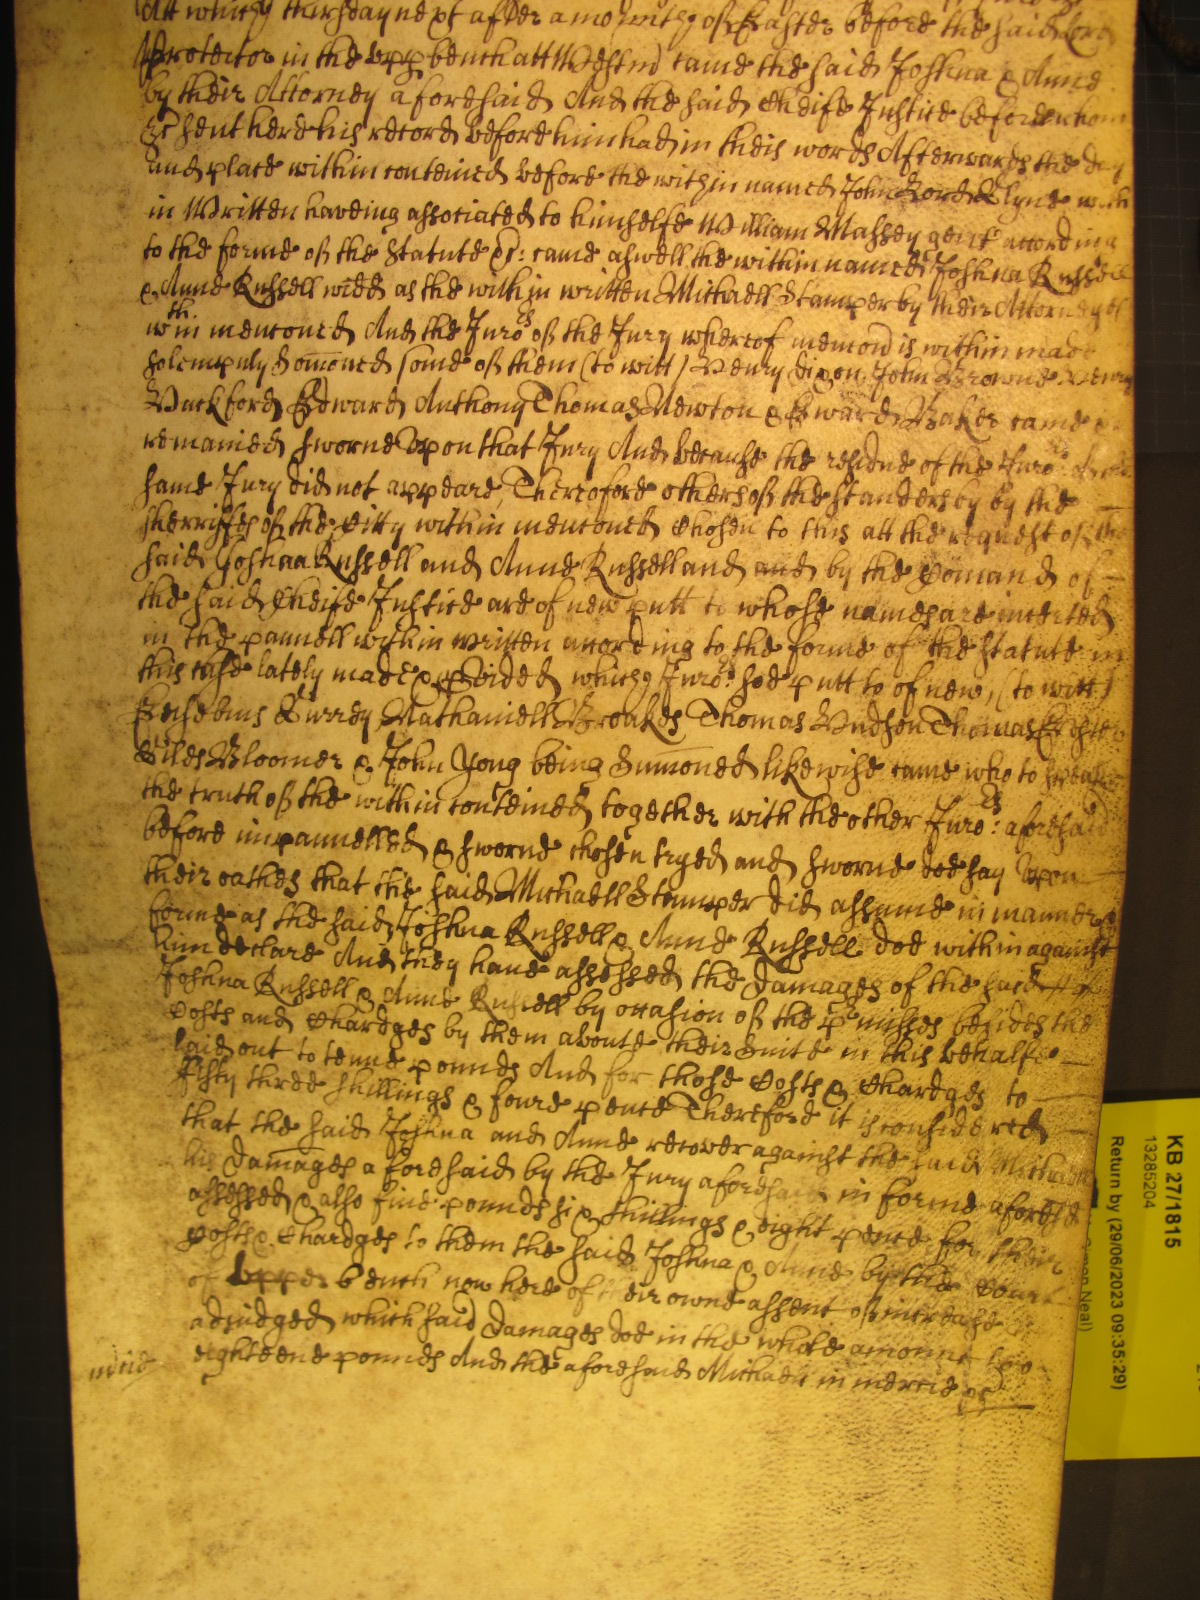 Att which Thursday next after a moneth of Easter before the said Lord
Protector in the upp bench att Westm came the said Joshua & Anne
by their Attorney aforesaid And the said Cheife Justice before whom
&c sent here his record before him had in theis words Afterwards the day
and place within conteined before the within named John Lord Glyne
in Written haveing associated to himselfe William Massey gent according
to the forme of the Statute &c: came aswell the within named Joshua Russell
& Anne Russell widd as the within written Michaell Stamper by their Attorneyes
wthin menconed And the Juro:rs of the Jury whereof mencon is within made
solempnly Somoned some of them (to witt) Henry Dixon John Browne Henry
Buckford Edward Anthony Thomas Newton & Edward Baker came &
remained sworne upon that Jury And because the residue of the Juro:rs of the
same Jury did not appeare Therefore others of the standers by by the
sherriffes of the Citty within menconed Chosen to this att the request of the
said Joshua Russell and Anne Russell and and by the Comand of
the said Cheife Justice are of new putt to whose names are incerted
in the pannell within written according to the forme of the Statute in
this case lately made & pvided which Juro:rs soe putt to of new, (to witt)
Currey Nathaniell Broakes Thomas Hudson Thomas Foster
Giles Bloomer & John Yong being Sumoned likewise came who to speake
the truth of the within conteined together with the other Juro:rs aforesaid
before impannelled & sworne chosen tryed and sworne doe say upon
their oathes that the said Michaell Stamper did assume in manner &
forme as the said Joshua Russell & Anne Russell doe within against
him declare And they have assessed the damages of the said
Joshua Russell & Anne Russell by occasion of the pmisses besides the
Costs and Chardges by them aboute their Suite in this behalfe
laid out to tenne pounds And for those Costs & Chardges to
fifty three shillings & foure pence Therefore it is considered
that the said Joshua and Anne recover against the said Michaell
his damages aforesaid by the Jury aforesaid in forme aforesd
assessed & also five pounds six shillings & eight pence for their
Costs & Chardges to them the said Joshua & Anne by the Court
of upper bench now here of their owne assent of increase
adjudged which said damages doe in the whole amount to
eighteene pounds And the aforesaid Michaell in mercie &c
mcie
KB 27/1815
13285204
Return by (29/06/2023 09:35:29)
Neal)